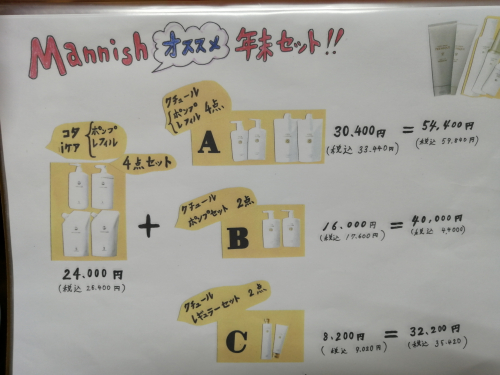 Mannish オススメ 年末セット!!
コタ
iケア
ポンプ
レフィル
4点セット
24.000円
(税込 26.400円)
+
クチュール
ポンプ
レフィル 4点
A
30.400円
(税込 33.440円)
= 54.400円
(税込 59.840円)
クチュール
ポンプセット 2点
B
16.000円
(税込 17.600円)
= 40,000円
(税込 44000)
クチュール
レギュラーセット 2点
C
8,200円
(税込 9.020円)
= 32.200円
(税込 35.420)